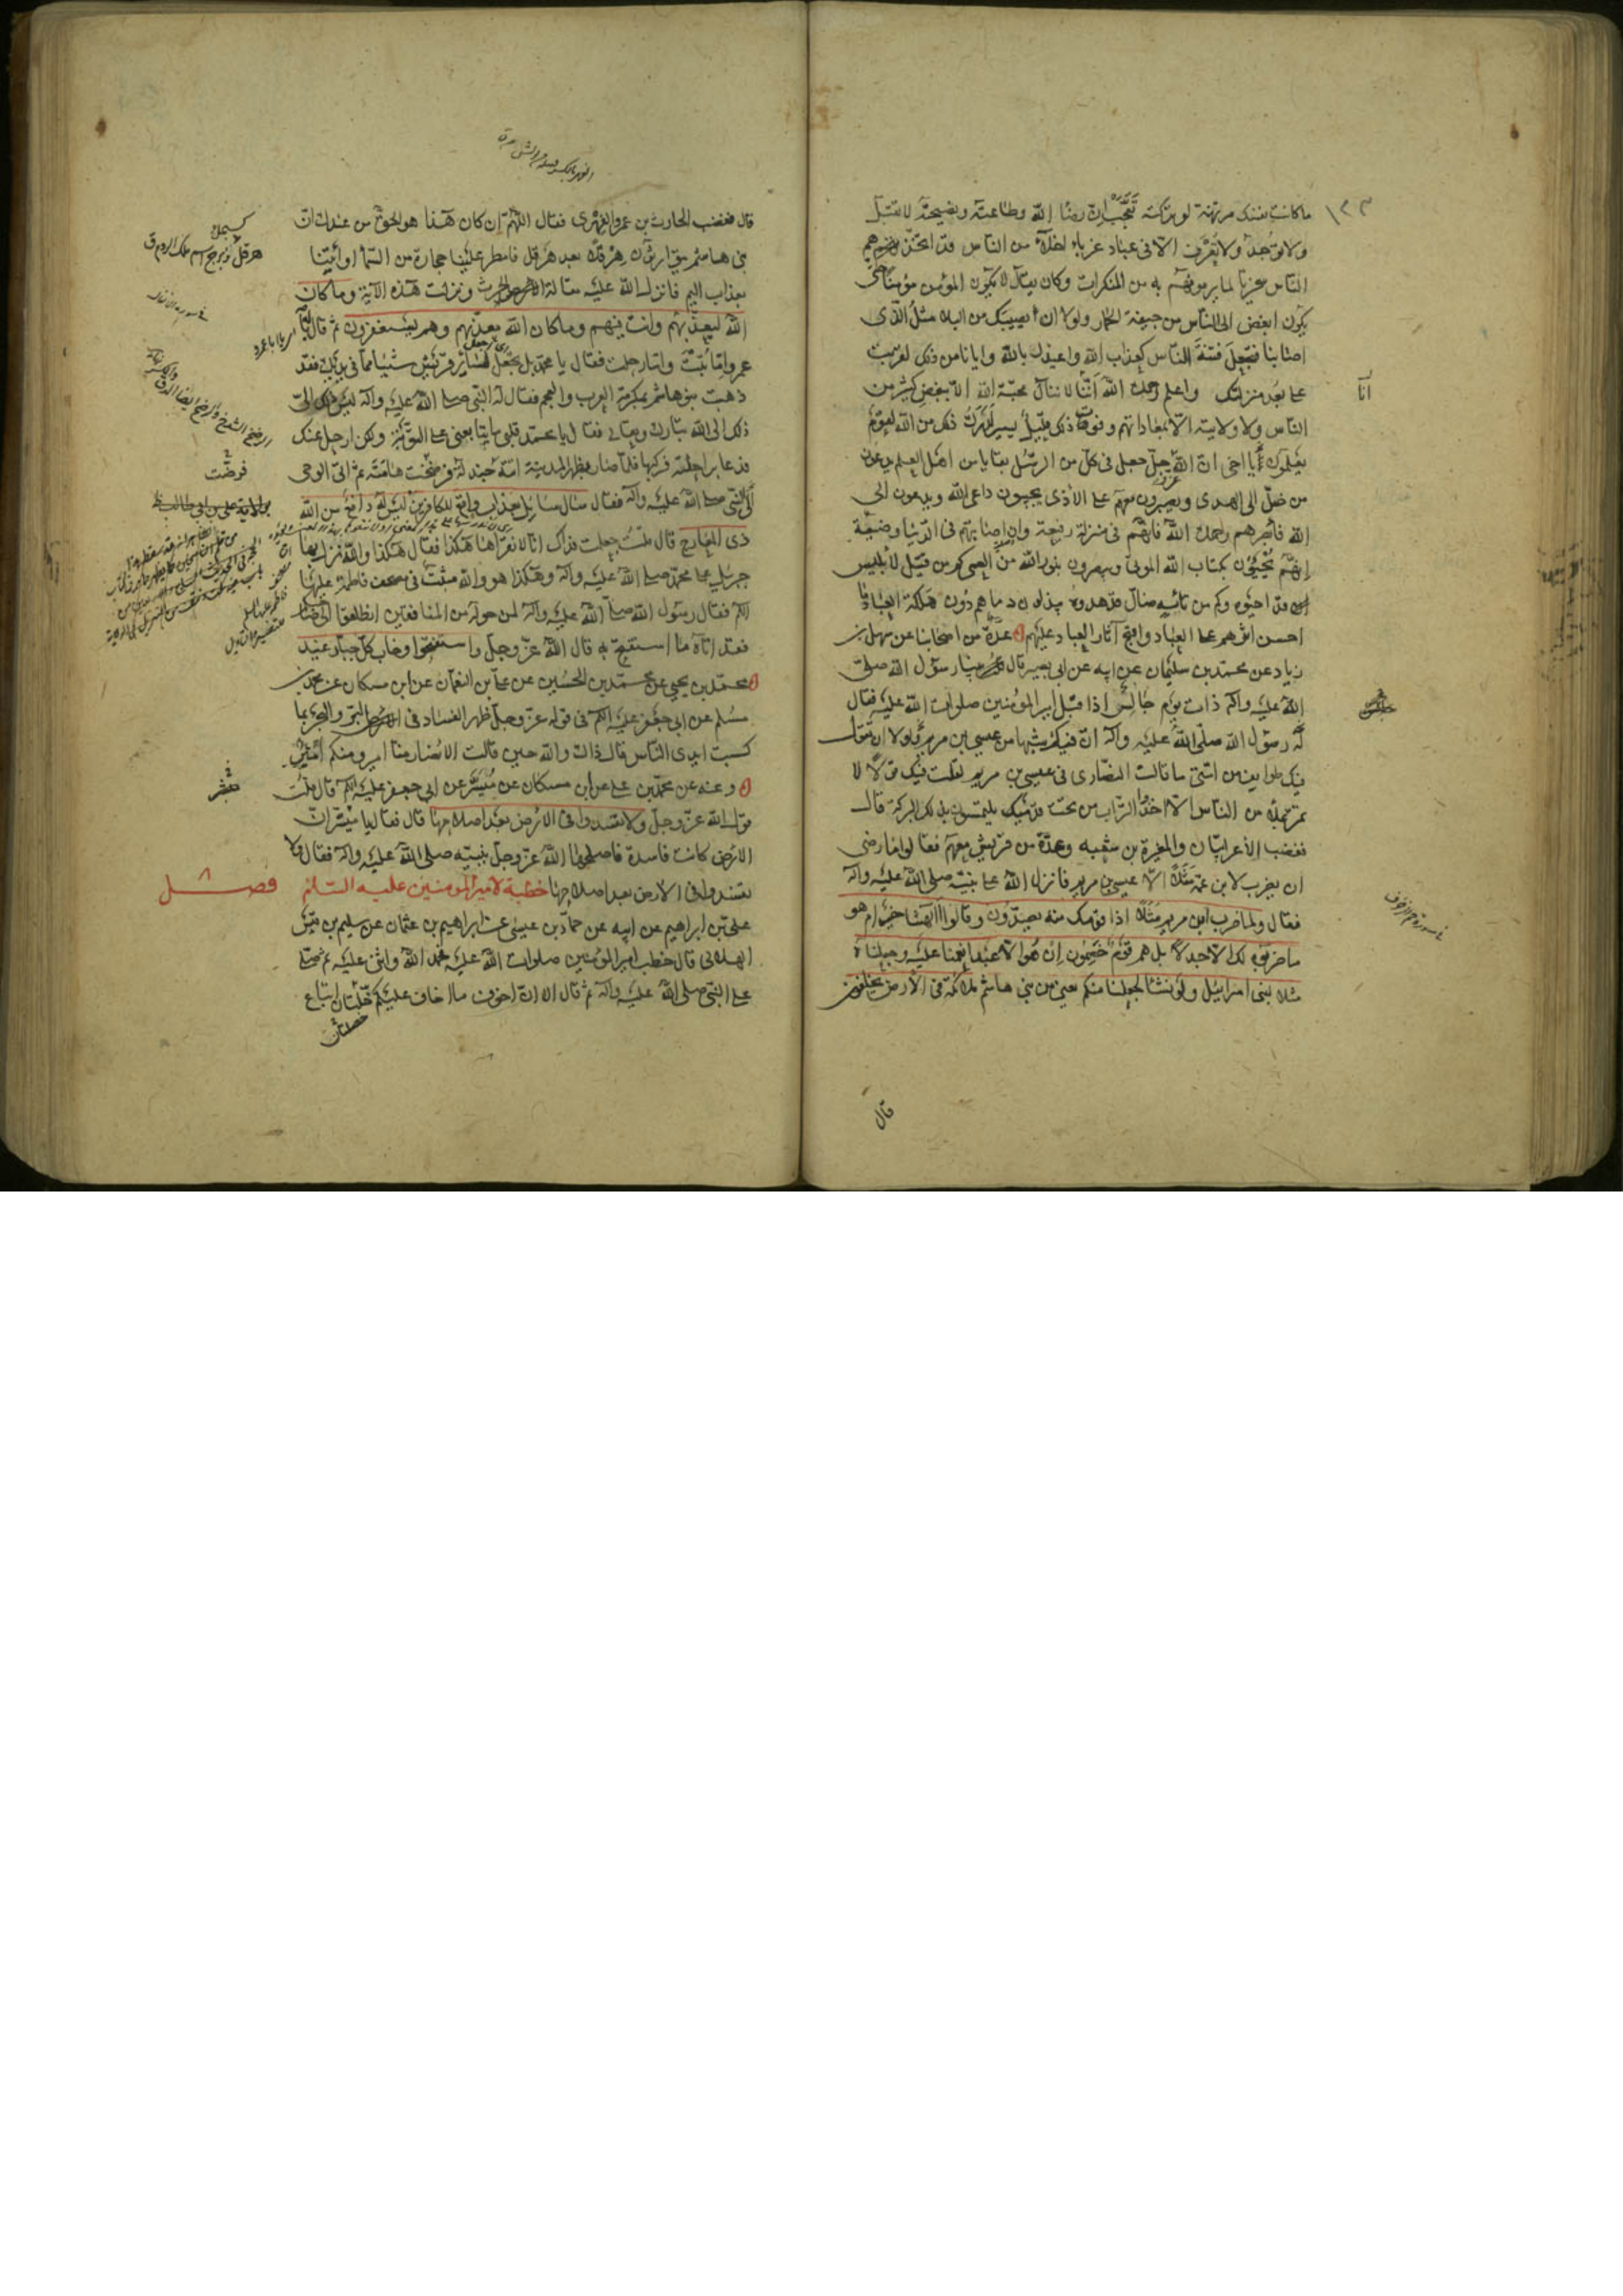 ما كانت نفسك مرتهنة لو تركته تعجبك ان رضا الله وطاعته ونصيحته لا تقبل
ولا توجد ولا تعرف الا فى عباد غرباء اخلاء من الناس قد اتخذهم
الناس سخريا لما يرمونهم به من المنكرات وكان يقال لا يكون المؤمن مؤمنا حتى
يكون ابغض الى الناس من جيفة الحمار ولولا ان يصيبك من البلاء مثل الذى
اصابنا فتجعل فتنة الناس كعذاب الله واعيذك بالله وايانا من ذلك لقربت
على بعد منزلتك واعلم رحمك الله انا لا ننال محبة الله الا ببغض كثير من
الناس ولا ولايته الا بمعاداتهم وفوت ذلك قليل يسير لدرك ذلك من الله لقوم
يعلمون يا اخى ان الله عز وجل جعل فى كل من الرسل بقايا من اهل العلم يدعون
من ضل الى الهدى ويصبرون معهم على الأذى يجيبون داعى الله ويدعون الى
الله فابصرهم رحمك الله فانهم فى منزلة رفيعة وان اصابتهم فى الدنيا وضيعة
انهم يحيون بكتاب الله الموتى ويبصرون بنور الله من العمى كم من قتيل لأبليس
قد احيوه وكم من تائه ضال قد هدوه يبذلون دماءهم دون هلكة العباد ما
احسن اثرهم على العباد واقبح آثار العباد عليهم عدة من اصحابنا عن سهل بن
زياد عن محمد بن سليمان عن ابيه عن ابى بصير قال بينا رسول الله صلى
الله عليه وآله ذات يوم جالس اذا قبل امير المؤمنين صلوات الله عليه فقال
له رسول الله صلى الله عليه وآله ان فيك شبها من عيسى بن مريم ولولا ان تقول
فيك طوايف من امتى ما قالت النصارى فى عيسى بن مريم لقلت فيك قولا لا
تمر بملأ من الناس الا اخذوا التراب من تحت قدميك يلتمسون بذلك البركة قال
فغضب الأعرابيان والمغيرة بن شعبه وعدة من قريش معهم فقالوا ما رضى
ان يضرب لابن عمه مثلا الا عيسى بن مريم فانزل الله على نبيه صلى الله عليه وآله
فقال ولما ضرب ابن مريم مثلا اذا قومك منه يصدون وقالوا أآلهتنا خير ام هو
ما ضربوه لك الا جدلا بل هم قوم خصمون ان هو الا عبد انعمنا عليه وجعلناه
مثلا لبنى اسرائيل ولو نشاء لجعلنا منكم يعنى من بنى هاشم ملائكة فى الأرض يخلفون
قال
انا
فى سورة الزخرف
قال فغضب الحارث بن عمرو الفهرى فقال اللهم ان كان هذا هو الحق من عندك ان
بنى هاشم يتوارثون هرقلا بعد هرقل فامطر علينا حجارة من السماء او ائتنا
بعذاب اليم فانزل الله عليه مقالة الحرث ونزلت هذه الآية وما كان
الله ليعذبهم وانت فيهم وما كان الله معذبهم وهم يستغفرون ثم قال له يا
عمرو اما تبت واما رحلت فقال يا محمد بل تجعل لسائر قريش شيئا مما فى يديك فقد
ذهبت بنو هاشم بمكرمة العرب والعجم فقال له النبى صلى الله عليه وآله ليس ذلك الى
ذلك الى الله تبارك وتعالى فقال يا محمد قلبى ما يتابعنى على التوبة ولكن ارحل عنك
فدعا براحلته فركبها فلما صار بظهر المدينة اتته جندلة فرضخت هامته ثم اتى الوحى
الى النبى صلى الله عليه وآله فقال سأل سائل بعذاب واقع للكافرين ليس له دافع من الله
ذى المعارج قال قلت جعلت فداك انا لا نقرأها هكذا فقال هكذا والله نزل بها
جبرئيل على محمد صلى الله عليه وآله وهكذا هو والله مثبت فى مصحف فاطمة عليها
السلام فقال رسول الله صلى الله عليه وآله لمن حوله من المنافقين انطلقوا الى صاحبكم
فقد اتاه ما استفتح به قال الله عز وجل واستفتحوا وخاب كل جبار عنيد
محمد بن يحيى عن محمد بن الحسين عن على بن النعمان عن ابن مسكان عن محمد بن
مسلم عن ابى جعفر عليه السلام فى قوله عز وجل ظهر الفساد فى البر والبحر بما
كسبت ايدى الناس قال ذاك والله حين قالت الانصار منا امير ومنكم امير
وعنه عن محمد بن على عن ابن مسكان عن ميسر عن ابى جعفر عليه السلام قال قلت
قول الله عز وجل ولا تفسدوا فى الأرض بعد اصلاحها قال فقال يا ميسر ان
الارض كانت فاسدة فاصلحها الله عز وجل بنبيه صلى الله عليه وآله فقال ولا
تفسدوا فى الأرض بعد اصلاحها خطبة لامير المؤمنين عليه السلام فصل
على بن ابراهيم عن ابيه عن حماد بن عيسى عن ابراهيم بن عثمان عن سليم بن قيس
الهلالى قال خطب امير المؤمنين صلوات الله عليه فحمد الله واثنى عليه ثم صلى
على النبى صلى الله عليه وآله ثم قال الا ان اخوف ما اخاف عليكم خلتان اتباع
خصلتان
هرقل كزبرج اسم ملك الروم ق
فى سورة الانفال
فرضت
بولاية على بن ابى طالب